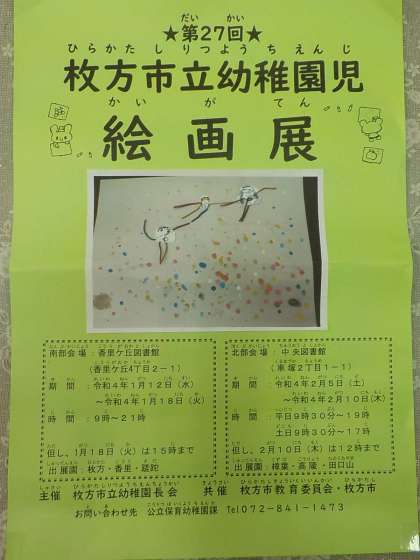 ★第27回★
だい かい
ひらかた しりつよう ちえんじ
枚方市立幼稚園児
かい が てん
絵画展
南部会場：香里ケ丘図書館
（香里ケ丘4丁目2－1）
期間：令和4年1月12日（水）
～令和4年1月18日（火）
時間：9時～21時
但し、1月18日（火）は15時まで
出展園：枚方・香里・蹉跎
北部会場：中央図書館
（車塚2丁目1－1）
期間：令和4年2月5日（土）
～令和4年2月10日（木）
時間：平日9時30分～19時
土日9時30分～17時
但し、2月10日（木）は12時まで
出展園：樟葉・高陵・田口山
主催 枚方市立幼稚園長会 共催 枚方市教育委員会・枚方市
お問い合わせ先 公立保育幼稚園課 Tel072-841-1473